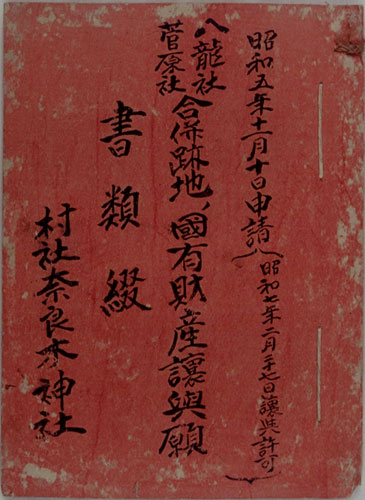 昭和五年十一月十日申請(昭和七年二月二十七日譲与許可)
八龍社
菅原社
合併跡地ノ國有財産讓與願
書類綴
村社奈良木神社